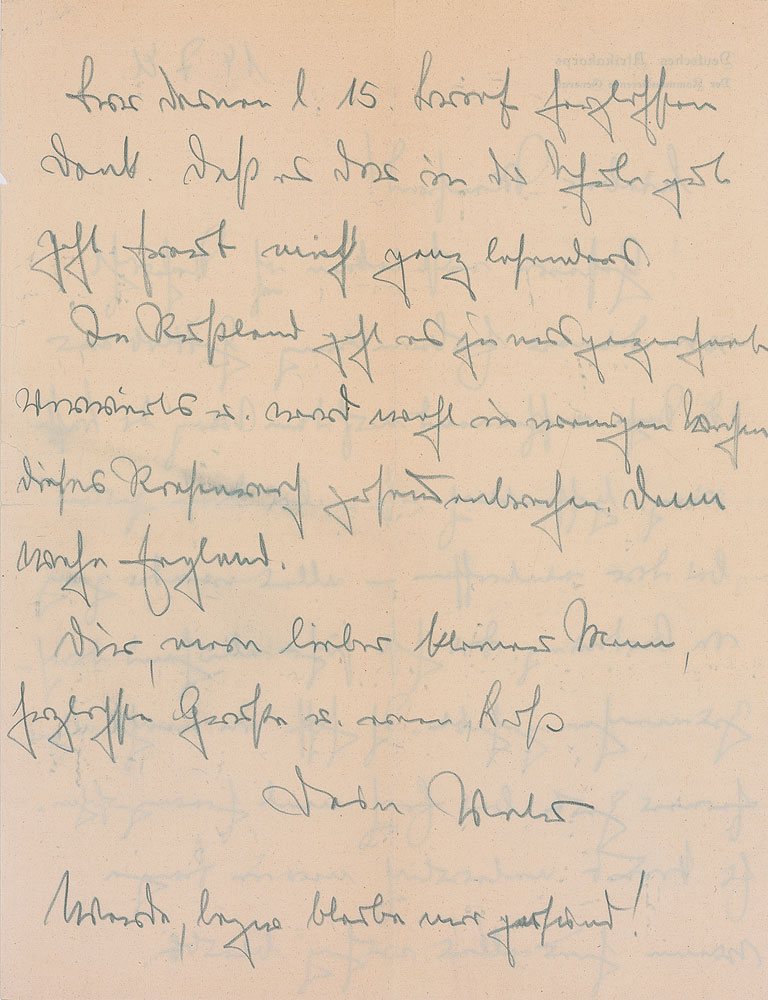 Für deinen l. 15. Brief herzlichsten
Dank. Daß es dir in der Schule gut
geht freut mich ganz besonders.
In Rußland geht es ja ausgezeichnet
vorwärts u. wird wohl in wenigen Wochen
dieses Riesenreich zusammenbrechen. Dann
wehe England.
Dir, mein lieber kleiner Mann,
herzlichste Grüße u. einen Kuß
Dein
Werde, bezw bleibe mir gesund!